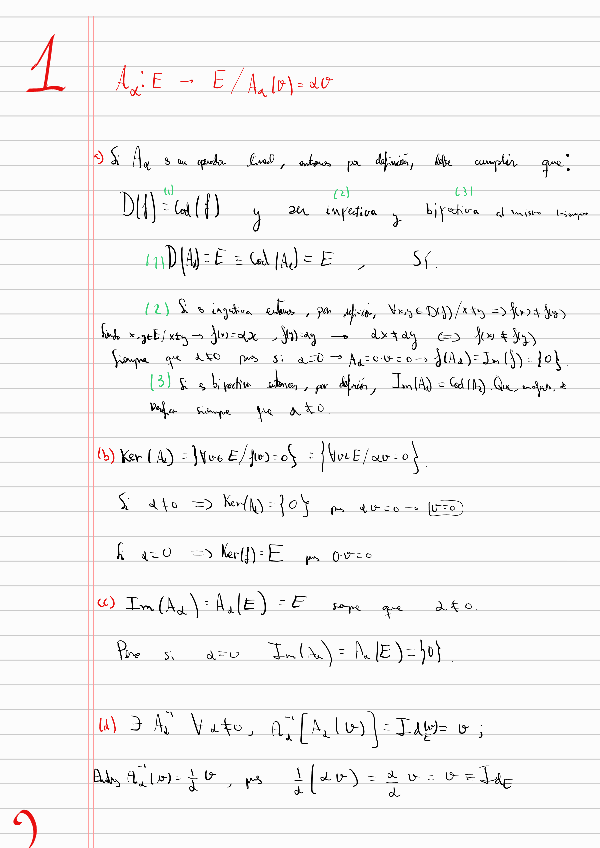 1
A_α: E → E / A_α(v) = αv
a) Si A_α es un operador lineal, entonces por definición, debe cumplir que:
(1) (2) (3)
D(f) = Cod(f) y ser inyectiva y biyectiva al mismo tiempo
(1) D(A_α) = E ≡ Cod(A_α) = E , Sí.
(2) Si es inyectiva entonces, por definición, ∀x,y ∈ D(f) / x≠y => f(x) ≠ f(y)
Siendo x,y∈E / x≠y → f(x)=αx , f(y)=αy → αx≠αy <=> f(x) ≠ f(y)
Siempre que α≠0 pues si α=0 → A_α=0·v=0 → f(A_α)=Im(f)={0}.
(3) Si es biyectiva entonces, por definición, Im(A_α) = Cod(A_α). Que, se
siempre que α≠0.
(b) Ker(A_α) = {∀v∈E / f(v)=0} = {∀v∈E / αv=0}.
Si α≠0 => Ker(A_α) = {0} pues αv=0 → v=0
Si α=0 => Ker(f) = E pues 0·v=0
(c) Im(A_α) = A_α(E) = E siempre que α≠0.
Pero si α=0 Im(A_α) = A_α(E) = {0}.
(d) ∃ A_α⁻¹ ∀α≠0, A_α⁻¹[A_α(v)] = Id_E(v) = v ;
A_α⁻¹(v) = 1/α v , pues 1/α (αv) = α/α v = v = Id_E
2